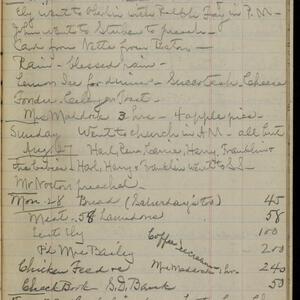 Ely went to Berlin with Ralph Jay in P.M.
John went to Stuben to preach.
Card from Netta from Boston
Rain - blessed rain -
Lemon Ice for dinner - Succotash, Cheese
Fondu - Celery on Toast -
Mrs Maddock 3 hrs - 4 apple pies -
Sunday Went to church in A.M - all but
Aug 27 Harl, Rena, Carrie, Henry, Franklin &
the babies! Harl, Henry & Franklin went to S.S.
Mr Norton preached -
Mon - 28 Bread (Saturday's too) 45
Meat - 58 Lansdowne 58
Lent Ely 100
Pd Mrs Bailey 200
Coffee, ice cream
Chicken Feed Mrs Maddock 1 hr. 240
Check Book S.D. Bank 50